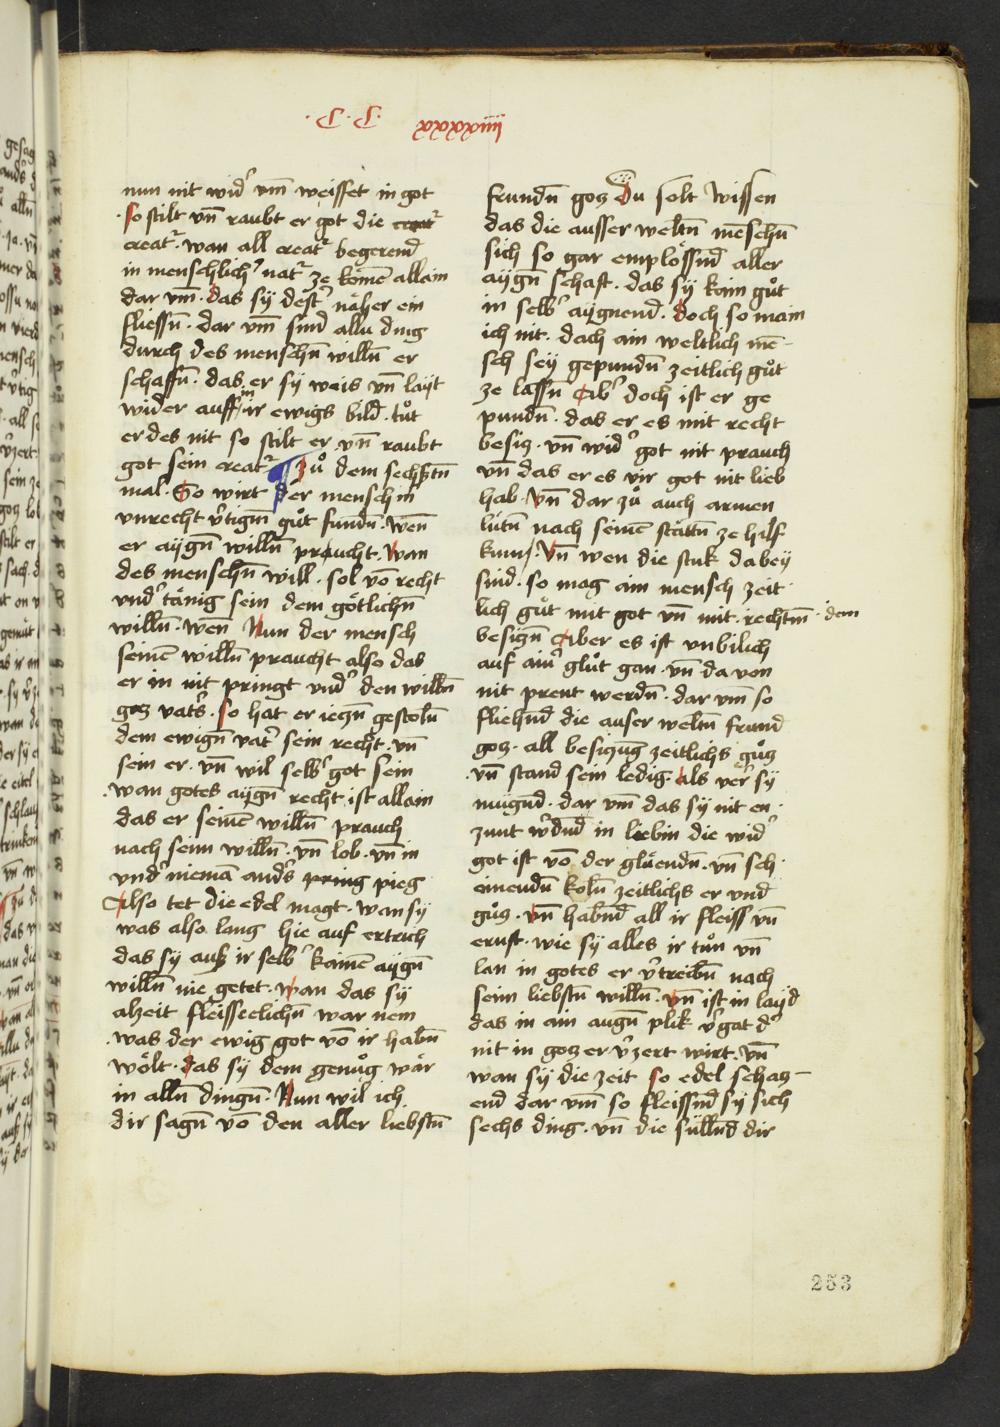 ·C·C· xxxxxiiij
nun nit wid᷑ vm̄ weisset in got
so stilt vn̄ raubt er got die creat᷑
creat᷑. wan all creat᷑ begerend
in menschlich᷑ nat᷑ ze komē allain
dar vm̄. das sÿ dest᷑ näher ein
fliessn̄. dar vm̄ sind allu ding
durch des menschn̄ willn̄ er
schaffn̄. das er sÿ weis vn̄ layt
wider auff in ir ewigs bild. tůt
er des nit so stilt er vn̄ raubt
got sein creat᷑ Zů dem sechstn̄
mal. So wirt der mensch in
vnrecht v᷑tigm̄ gůt fundn̄. wen̄
er aygn̄ willn̄ praucht. wan
des menschn̄ will. sol vō recht
vnd᷑tänig sein dem götlichn̄
willn̄. wen̄ Nun der mensch
seinē willn̄ praucht also das
er in nit pringt vnd᷑ den willn̄
gocz vat᷑s. so hat er ieczn̄ gestoln̄
dem ewign̄ vat᷑ sein recht. vn̄
sein er. vn̄ wil selb᷑ got sein
wan gotes aygn̄ recht ist allain
das er seinē willn̄ prauch
nach seim willn̄. vn̄ lob. vn̄ in
vnd᷑ niemā and᷑s pring pieg
Also tet die edel magt. wan sÿ
was also lang hie auf ertrich
das sÿ auß ir selb᷑ kainē aygn̄
willn̄ nie getet. wan das sÿ
alzeit fleisseclichn̄ war nem
was der ewig got vō ir habn̄
wölt. das sÿ dem genůg wär
in alln̄ dingn̄. Nun wil ich
dir sagn̄ vō den aller liebstn̄
frundn̄ gocz Du solt wissen
das die ausser weltn̄ mēschn̄
sich so gar emplössnd aller
aÿgn̄ schaft. das sÿ kain gůt
in selb᷑ aÿgnend. doch so main
ich nit. dach ain weltlich mē-
sch seÿ gepundn̄ zeitlich gůt
ze lassn̄ Ab᷑ doch ist er ge
pundn̄. das er es mit recht
besicz. vn̄ wid᷑ got nit prauch
vn̄ das er es vir got nit lieb
hab. vn̄ dar zů auch armen
lütn̄ nach seinē stattn̄ ze hilf
kum. Vn̄ wen die stuk da beÿ
sind. so mag ain mensch zeit
lich gůt mit got vn̄ mit. rechtm̄. dem
besiczn̄ Aber es ist vnbilich
auf ain᷑ glůt gan. vn̄ da von
nit prent werdn̄. dar vm̄ so
fliehnd die auser weltn̄ frund
gocz. all besiczūg zeitlichs gůcz
vn̄ stand sein ledig. als ver᷑ sÿ
mugnd. dar vm̄ das sÿ nit en
zunt w᷑dnd in liebin die wid᷑
got ist vō der glüendn̄. vn̄ sch
einendn̄ koln̄ zeitlichs er vnd
gůcz. vn̄ habnd all ir fleiss vn̄
ernst. wie sÿ alles ir tůn vn̄
lan in gotes er v᷑treibn̄ nach
seim liebstn̄ willn̄. vn̄ ist in layd
das in ain augn̄ plik v᷑gat d᷑
nit in gocz er v᷑zert wirt. vn̄
wan sÿ die zeit so edel schacz-
end dar vm̄ so fleissnd sÿ sich
sechs ding. vn̄ die süllnd dir
253